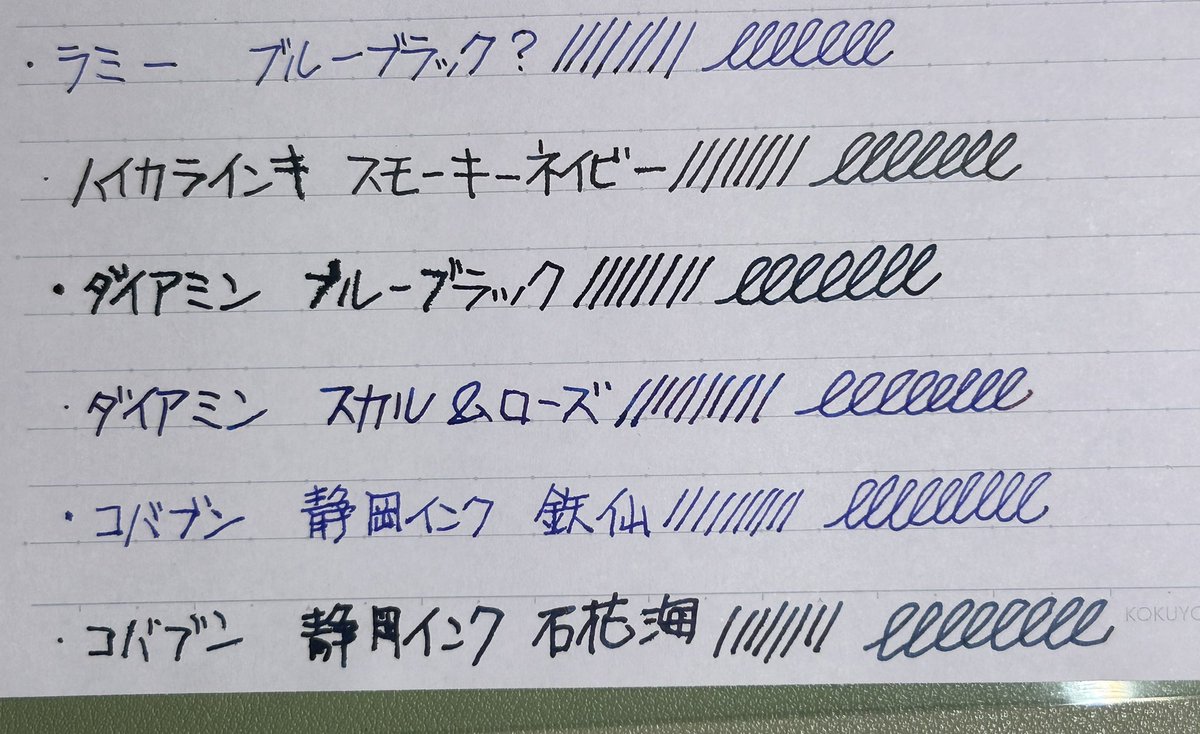 ・ラミー ブルーブラック?
・ハイカラインキ スモーキーネイビー
・ダイアミン ブルーブラック
・ダイアミン スカル&ローズ
・コバブン 静岡インク 鉄仙
・コバブン 静岡インク 石花海
KOKUYO